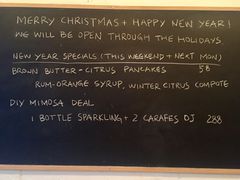 MERRY CHRISTMAS + HAPPY NEW YEAR!
WE WILL BE OPEN THROUGH THE HOLIDAYS
NEW YEAR SPECIALS (THIS WEEKEND + NEXT MON)
BROWN BUTTER-CITRUS PANCAKES 58
RUM-ORANGE SYRUP, WINTER CITRUS COMPOTE
DIY MIMOSA DEAL
1 BOTTLE SPARKLING + 2 CARAFES OJ 288